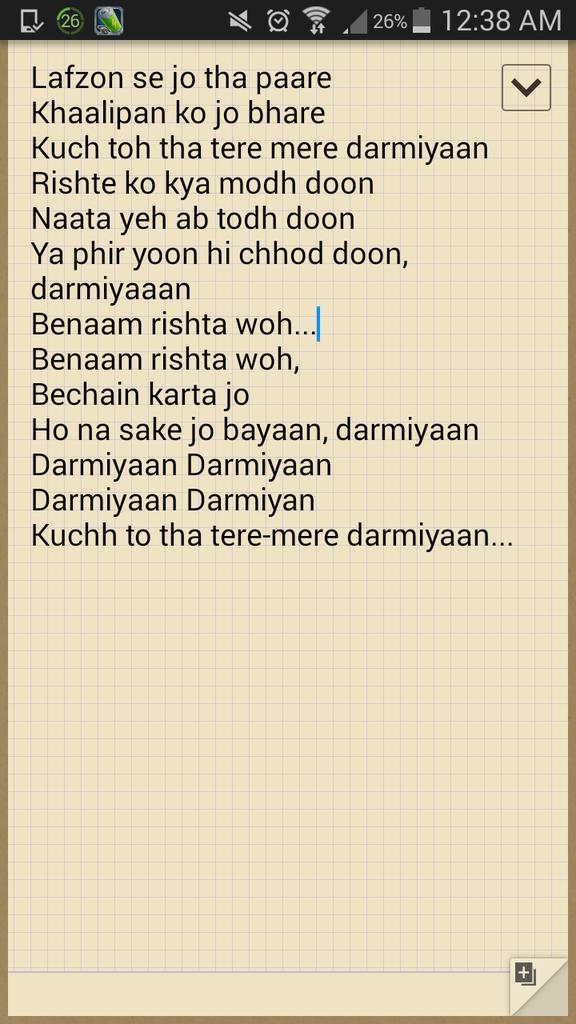 26 26% 12:38 AM
Lafzon se jo tha paare
Khaalipan ko jo bhare
Kuch toh tha tere mere darmiyaan
Rishte ko kya modh doon
Naata yeh ab todh doon
Ya phir yoon hi chhod doon,
darmiyaaan
Benaam rishta woh...
Benaam rishta woh,
Bechain karta jo
Ho na sake jo bayaan, darmiyaan
Darmiyaan Darmiyaan
Darmiyaan Darmiyan
Kuchh to tha tere-mere darmiyaan...